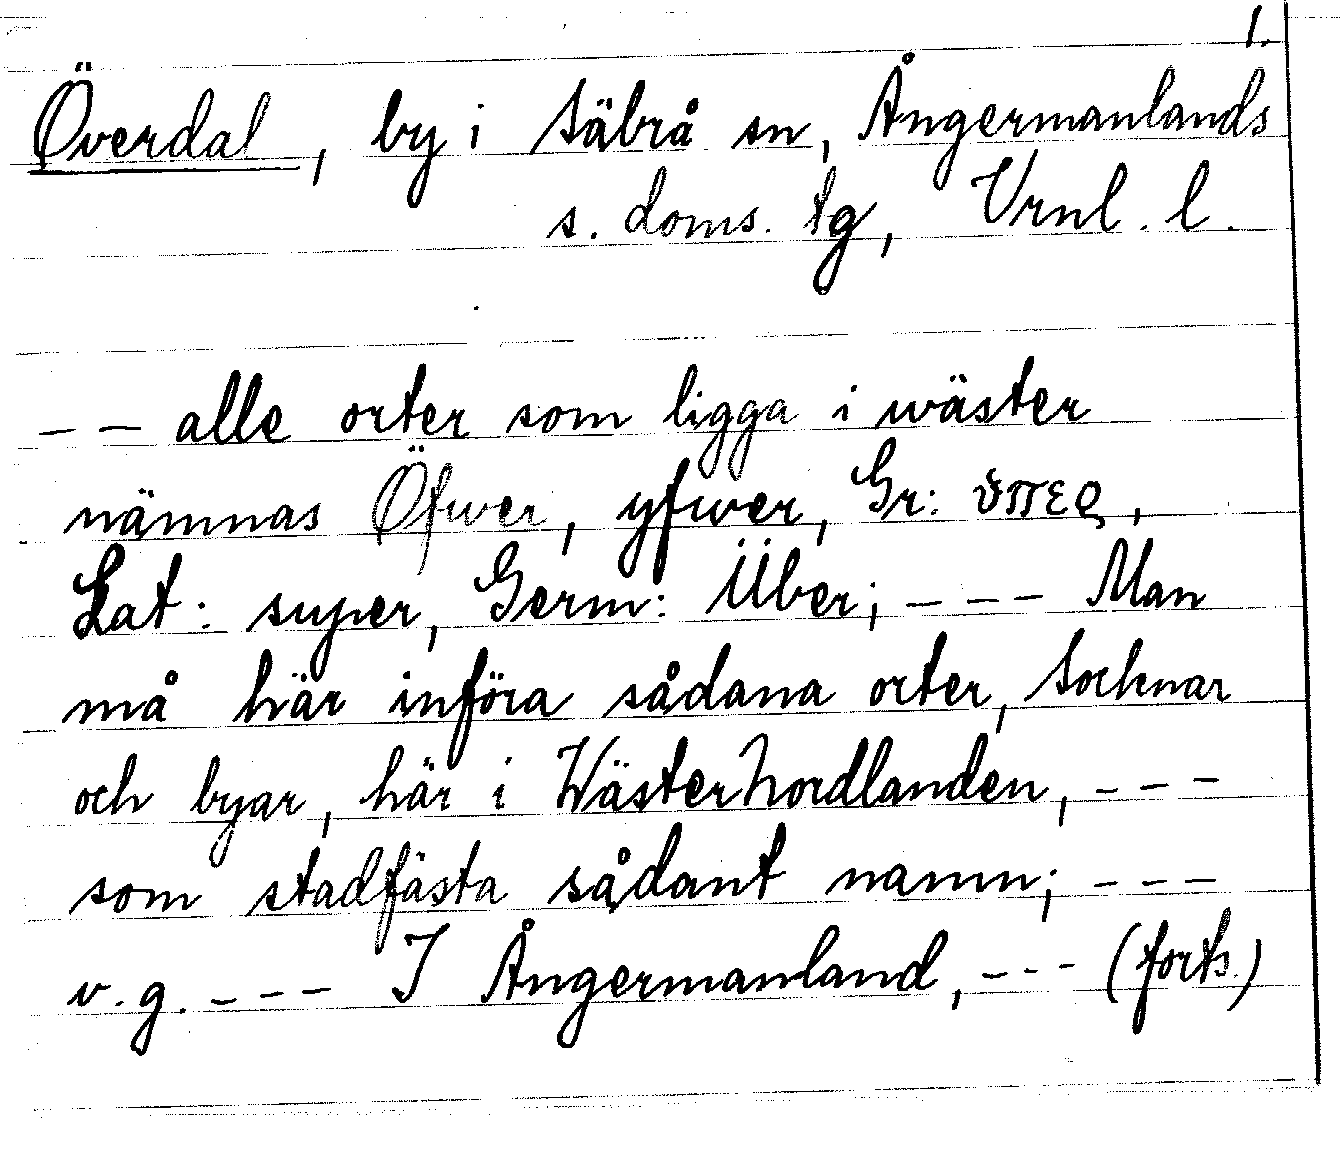 1.
Överdal, by i Säbrå sn, Ångermanlands
s. doms. tg, Vrnl. l.
-- alle orter som ligga i wäster
nämnas Öfwer, yfwer, Gr: ὑπερ,
Lat: super, Germ: Über; --- Man
må här införa sådana orter, Socknar
och byar, här i WästerNordlanden, ---
som stadfästa sådant namn; ---
v.g. --- I Ångermanland, --- (forts.)